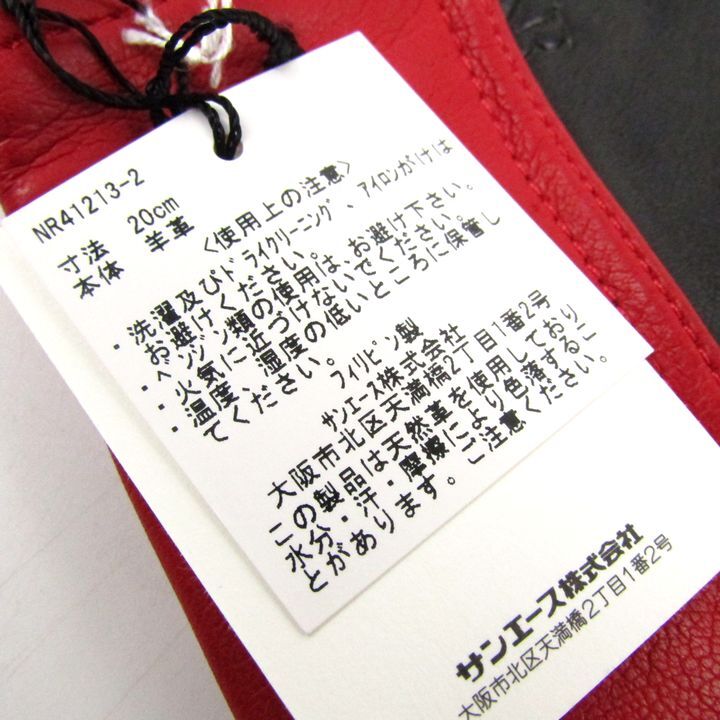 NR41213-2
寸法 20cm
本体 羊革
<使用上の注意>
・洗濯及びドライクリーニング、アイロンがけは
お避けください。
・ベンジン類の使用は、お避け下さい。
・火気に近づけないでください。
・温度、湿度の低いところに保管し
てください。
フィリピン製
サンエース株式会社
大阪市北区天満橋2丁目1番2号
この製品は天然革を使用しており
水分・汗・摩擦により色落するこ
とがあります。ご注意ください。
サンエース株式会社
大阪市北区天満橋2丁目1番2号